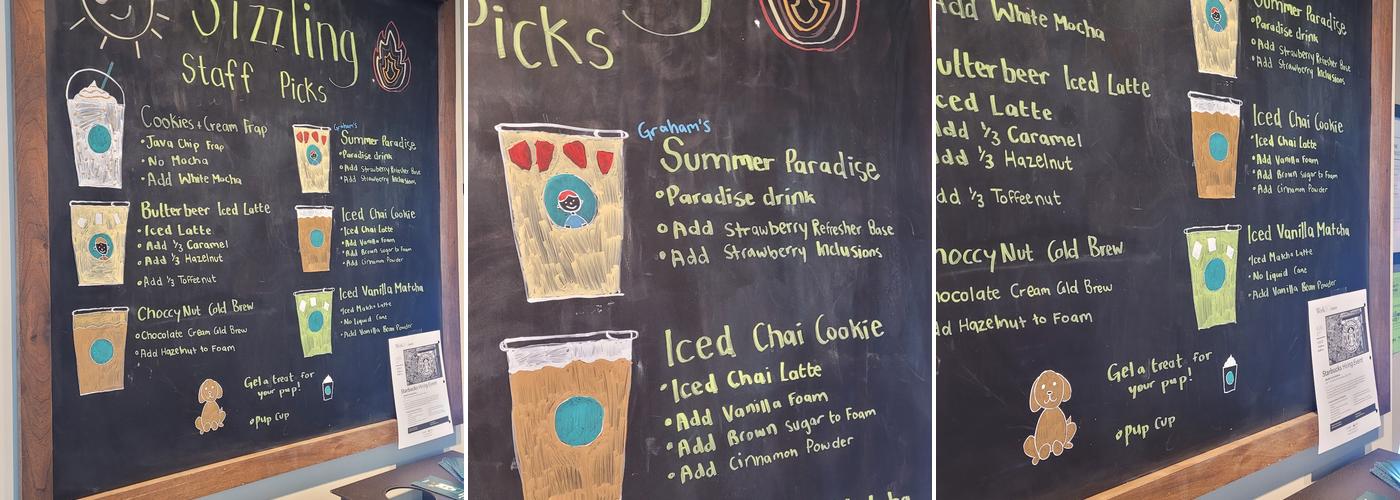 Sizzling
Staff Picks
Cookies + Cream Frap
• Java Chip Frap
• No Mocha
• Add White Mocha
Butterbeer Iced Latte
• Iced Latte
• Add 1/3 Caramel
• Add 1/3 Hazelnut
• Add 1/3 Toffeenut
Choccy Nut Cold Brew
• Chocolate Cream Cold Brew
• Add Hazelnut to Foam
Graham's
Summer Paradise
• Paradise drink
• Add Strawberry Refresher Base
• Add Strawberry Inclusions
Iced Chai Cookie
• Iced Chai Latte
• Add Vanilla Foam
• Add Brown Sugar to Foam
• Add Cinnamon Powder
Iced Vanilla Matcha
• Iced Matcha Latte
• No Liquid Cane
• Add Vanilla Bean Powder
Get a treat for
your pup!
• Pup Cup
Starbucks Hiring Event
Picks
Graham's
Summer Paradise
• Paradise drink
• Add Strawberry Refresher Base
• Add Strawberry Inclusions
Iced Chai Cookie
• Iced Chai Latte
• Add Vanilla Foam
• Add Brown Sugar to Foam
• Add Cinnamon Powder
Add White Mocha
utterbeer Iced Latte
ced Latte
dd 1/3 Caramel
dd 1/3 Hazelnut
dd 1/3 Toffeenut
hoccy Nut Cold Brew
hocolate Cream Cold Brew
dd Hazelnut to Foam
Summer Paradise
• Paradise drink
• Add Strawberry Refresher Base
• Add Strawberry Inclusions
Iced Chai Cookie
• Iced Chai Latte
• Add Vanilla Foam
• Add Brown Sugar to Foam
• Add Cinnamon Powder
Iced Vanilla Matcha
• Iced Matcha Latte
• No Liquid Cane
• Add Vanilla Bean Powder
Get a treat for
your pup!
• Pup Cup
Starbucks Hiring Event